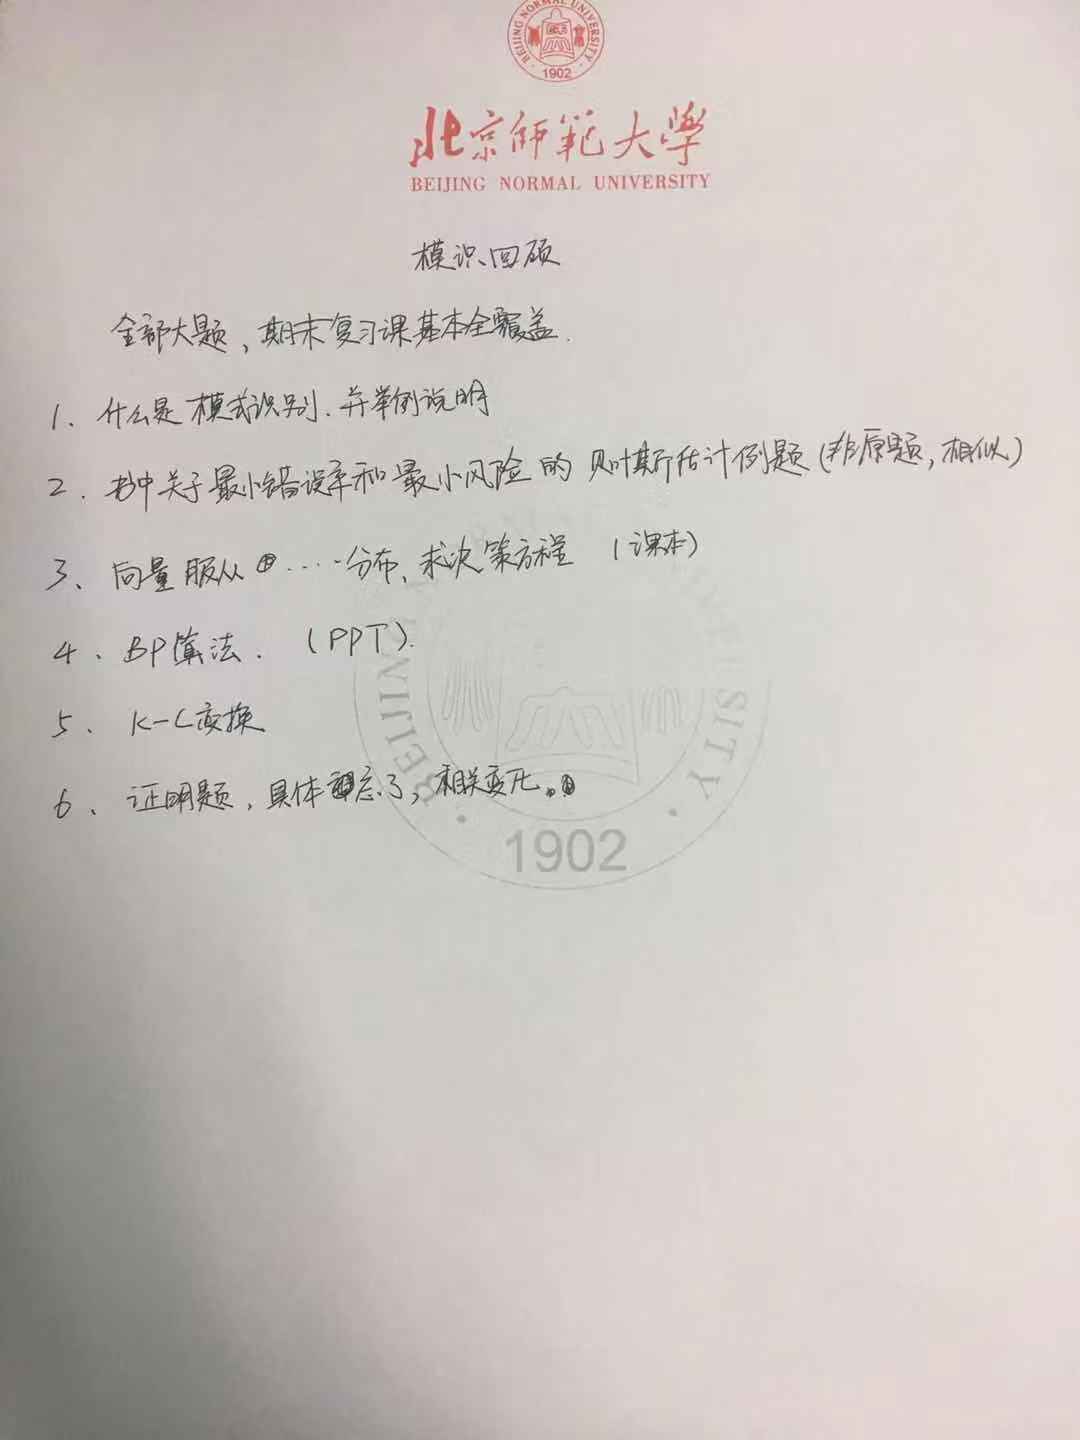 BEIJING NORMAL UNIVERSITY
1902
北京师范大学
BEIJING NORMAL UNIVERSITY
模识回顾
全部大题，期末复习课基本全覆盖.
1、什么是模式识别.并举例说明
2、书中关于最小错误率和最小风险的贝叶斯估计例题(非原题,相似)
3、向量服从.....分布,求决策方程 (课本)
4、BP算法. (PPT).
5、K-L变换
6、证明题,具体忘了,相关变形。
1902